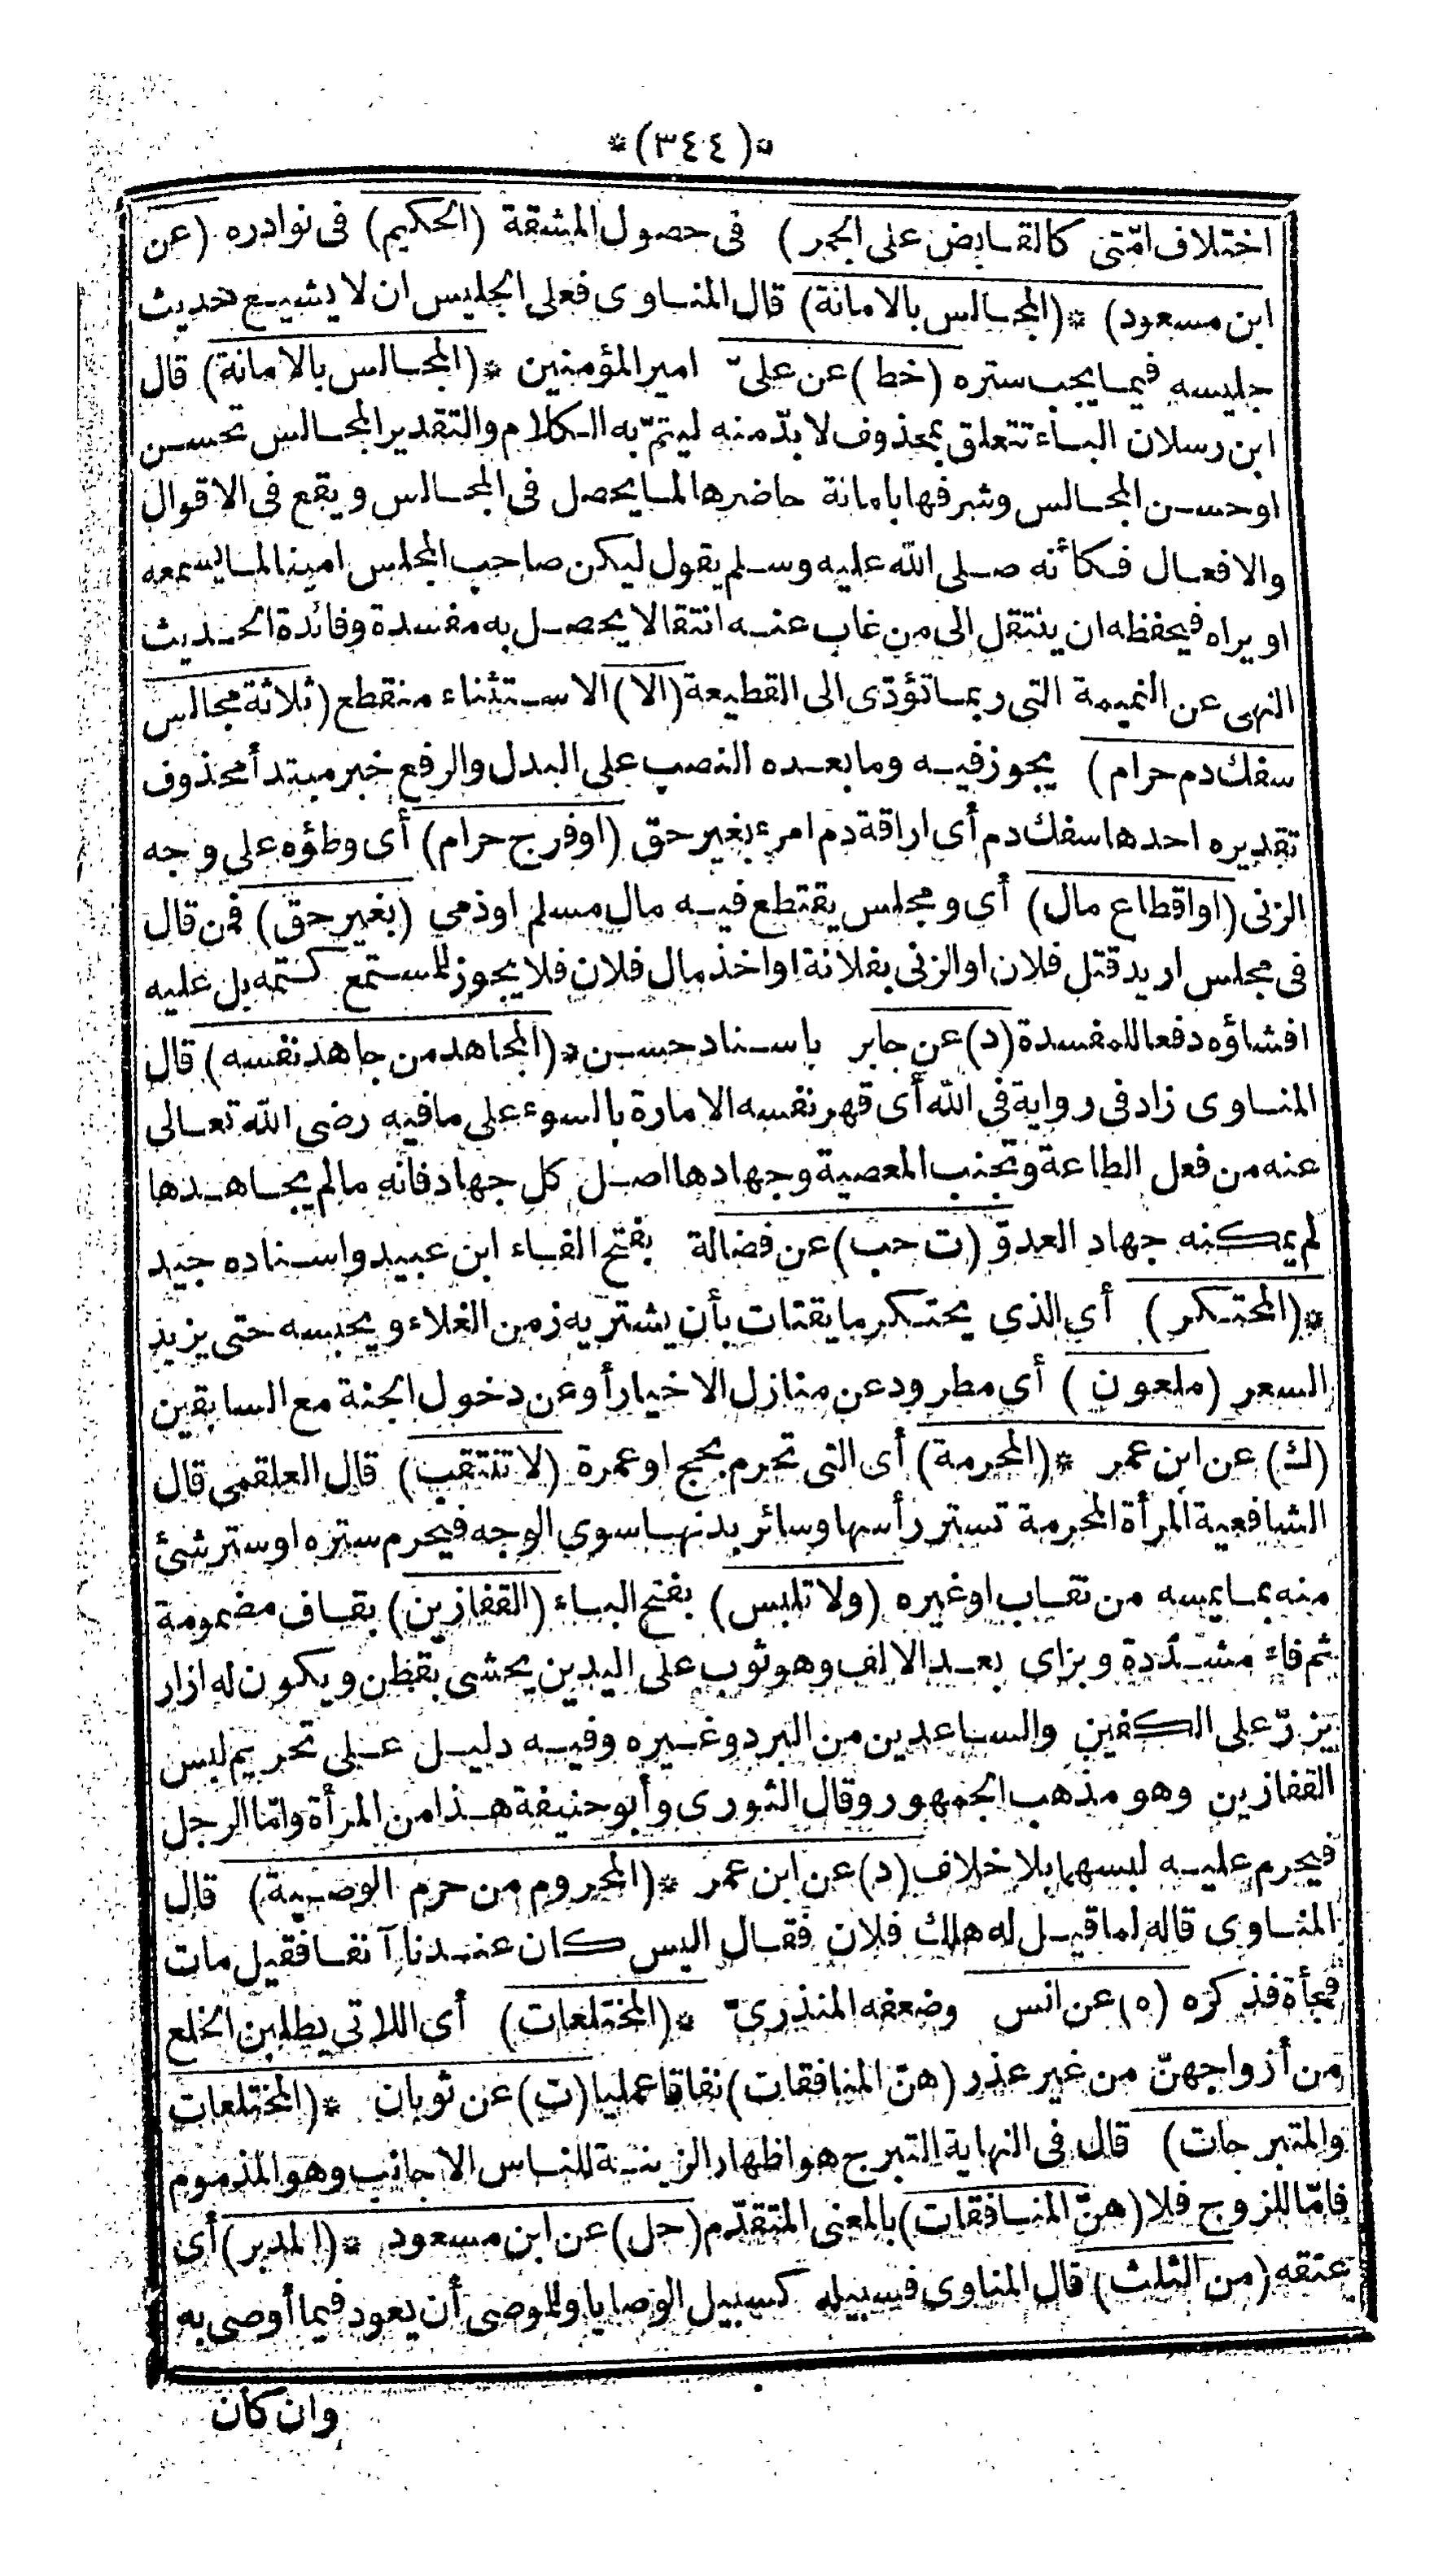 *(٣٤٤)*
اختلاف امّتى كالقابض على الجمر) فى حصول المشقة (الحكيم) فى نوادره (عن
ابن مسعود) *(المجالس بالامانة) قال المناوى فعلى الجليس ان لا يشيع حديث
جليسه فيما يجب ستره (خط) عن علىّ امير المؤمنين *(المجالس بالامانة) قال
ابن رسلان الباء تتعلق بمحذوف لابدّ منه ليتمّ به الكلام والتقدير المجالس تحسن
او حسن المجالس وشرفها بامانة حاضرها لما يحصل فى المجالس ويقع فى الاقوال
والافعال فكأنه صلى الله عليه وسلم يقول ليكن صاحب المجلس امينا لما يسمعه
او يراه فيحفظه ان ينتقل الى من غاب عنه انتقالا يحصل به مفسدة وفائدة الحديث
النهى عن النميمة التى ربما تؤدّى الى القطيعة (الا) الاستثناء منقطع (ثلاثة مجالس
سفك دم حرام) يجوز فيه وما بعده النصب على البدل والرفع خبر مبتدأ محذوف
تقديره احدها سفك دم أى اراقة دم امرء بغير حق (او فرج حرام) أى وظؤه على وجه
الزنى (او اقطاع مال) أى ومجلس يقتطع فيه مال مسلم او ذمي (بغير حق) فمن قال
فى مجلس اريد قتل فلان او الزنى بفلانة او اخذ مال فلان فلا يجوز للمستمع كتمه بل عليه
افشاؤه دفعا للمفسدة (د) عن جابر باسناد حسن *(المجاهد من جاهد نفسه) قال
المناوى زاد فى رواية فى الله أى قهر نفسه الامارة بالسوء على ما فيه رضى الله تعالى
عنه من فعل الطاعة وتجنب المعصية وجهادها اصل كل جهاد فانه مالم يجاهدها
لم يمكنه جهاد العدوّ (ت حب) عن فضالة بفتح الفاء ابن عبيد واسناده جيد
*(المحتكر) أي الذي يحتكر ما يقتات بأن يشتريه زمن الغلاء ويحبسه حتى يزيد
السعر (ملعون) أى مطرود عن منازل الاخيار أو عن دخول الجنة مع السابقين
(ك) عن ابن عمر *(المحرمة) أى التى تحرم بحج او عمرة (لا تنتقب) قال العلقمى قال
الشافعية المرأة المحرمة تستر رأسها وسائر بدنها سوى الوجه فيحرم ستره او ستر شئ
منه بما يمسه من نقاب او غيره (ولا تلبس) بفتح الباء (القفازين) بقاف مضمومة
ثم فاء مشدّدة وبزاي بعد الالف وهو ثوب على اليدين يحشى بقطن ويكون له ازار
يزرّ على الكفين والساعدين من البرد وغيره وفيه دليل على تحريم لبس
القفازين وهو مذهب الجمهور وقال الثورى وأبو حنيفة هذا من المرأة وامّا الرجل
فيحرم عليه لبسهما بلا خلاف (د) عن ابن عمر *(المحروم من حرم الوصية) قال
المناوى قاله لما قيل له هلك فلان فقال اليس كان عندنا آنفا فقيل مات
فجأة فذكره (ه) عن انس وضعفه المنذرىّ *(المختلعات) أى اللاتى يطلبن الخلع
من أزواجهنّ من غير عذر (هنّ المنافقات) نفاقا عمليا (ت) عن ثوبان *(المختلعات
والمتبرجات) قال فى النهاية التبرج هو اظهار الزينة للناس الاجانب وهو المذموم
فامّا للزوج فلا (هنّ المنافقات) بالمعنى المتقدّم (حل) عن ابن مسعود *(المدبر) أى
عتقه (من الثلث) قال المناوى فسبيله كسبيل الوصايا وللموصى أن يعود فيما أوصى به
وان كان